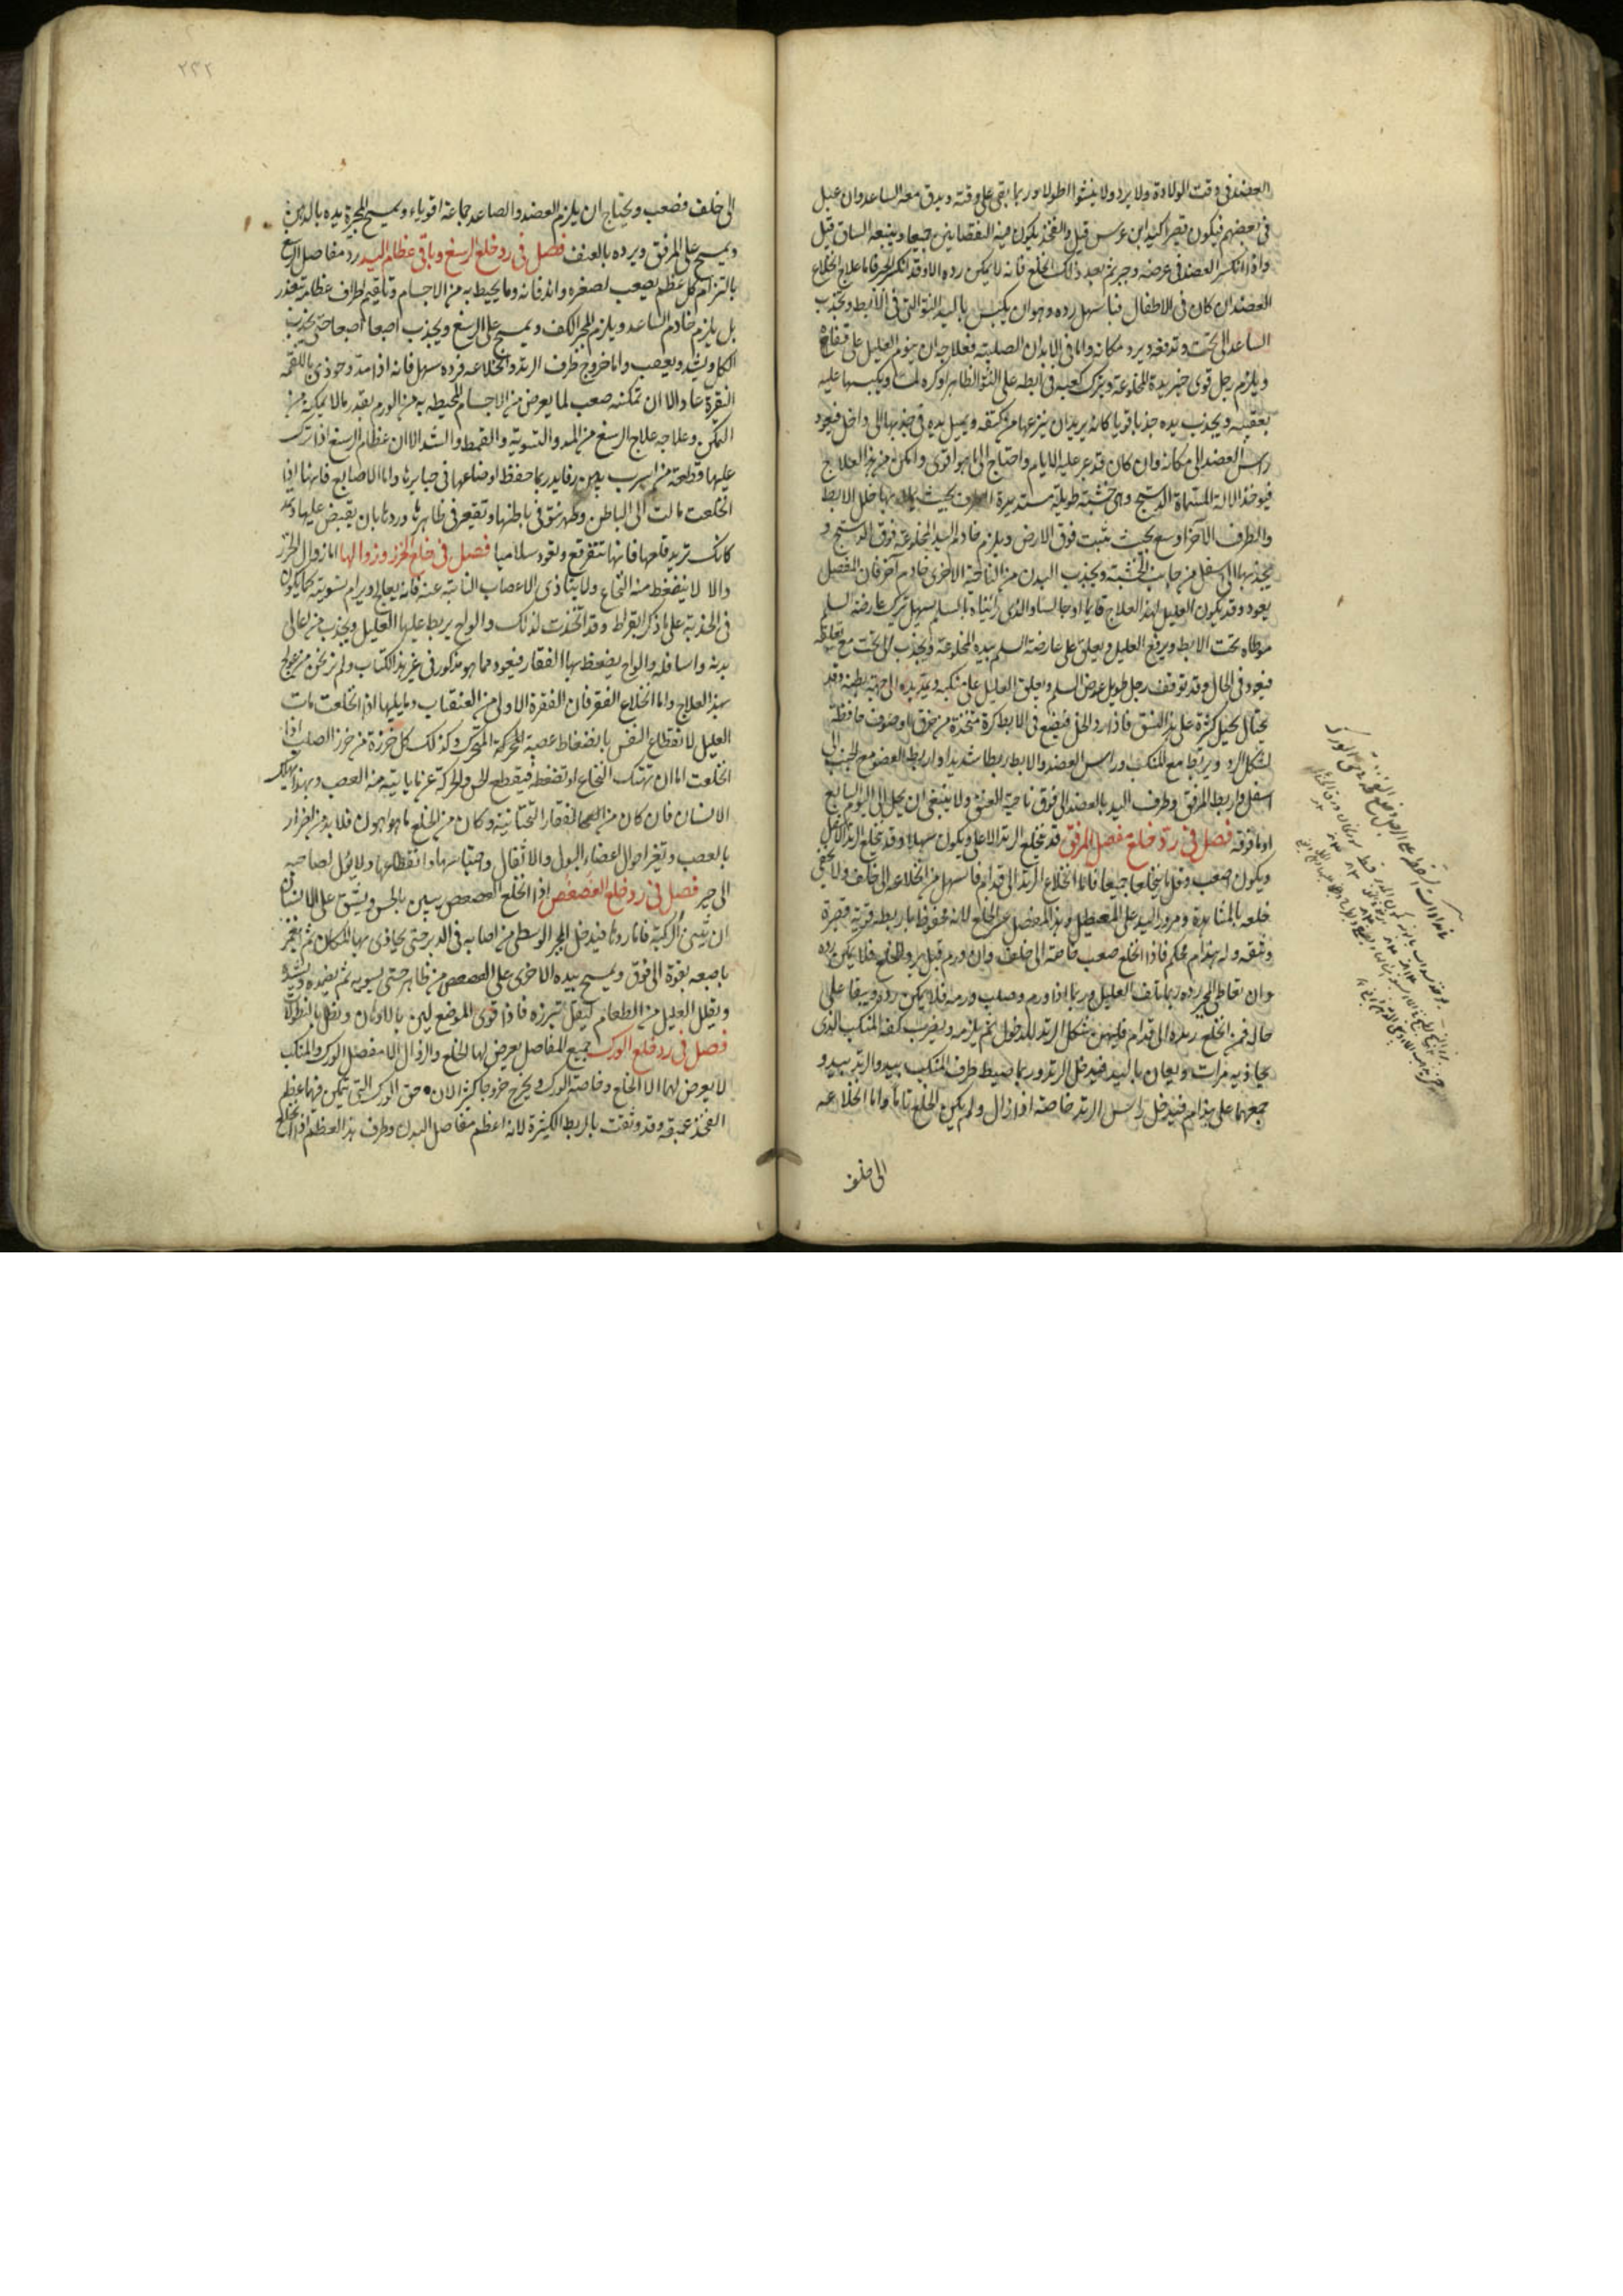 العضد فى وقت الولادة ولا يرد ولا ينشوا طولا وربما بقى على وقته ويدق معه الساعد وان عبل
فى بعضهم فيكون قصيرا كيد ابن عرس قيل والفخذ يكون فيه النقصانين جميعا ويتبعه الساق قيل
واذا انكسر العضد فى عرضه وجبر ثم بعد ذلك انخلع فانه لا يمكن رده الا وقد انكسر الجبر فاما علاج انخلاع
العضد ان كان فى الاطفال فما سهل رده وهو ان يكبس باليد النتو التى فى الابط ويجذب
الساعد الى تحت وتدفعه ويرد مكانه واما فى الابدان الصلبة فعلاجه ان ينوم العليل على قفاه
ويلزم رجل قوى خبير يده المخلوعة ويترك كعبه فى ابطه على النتو الظاهر او كره لت ويكبسها عليه
بعقبه ويجذب يده جذبا قويا كانه يريد ان ينزعها من كتفه ويميل يده فى جذبها الى داخل فيعود
راس العضد الى مكانه وان كان قد عبر عليه الايام واحتاج الى ما هو اقوى وامكن من هذا العلاج
فيوخذ الالة المسماة الدستج وهى خشبة طويلة مستديرة الطرف بحيث يملا بها خل الابط
والطرف الاخر اوسع بحيث يثبت فوق الارض ويلزم خادم اليد المخلوعة فوق الدستج و
يجذبها الى اسفل من جانب الخشبة ويجذب البدن من الناحية الاخرى خادم آخر فان المفصل
يعود وقد يكون العليل لهذا العلاج قايما او جالسا والذى رايناه بالسلم سهل تترك عارضة السلم
موطاه تحت الابط ويرفع العليل ويعلق على عارضة السلم بيده المخلوعة ويجذب الى تحت مع تعلقه
فيعود فى الحال وقد توقف رجل طويل عوض السلم ويعلق العليل على منكبه ويمد يده الى جهة بطنه وقد
يحتال بحيل كثيرة على هذا النسق فاذا رد الخلع فيضع فى الابط كرة متخذة من خرق او صوف حافظة
لشكل الرد ويربط مع المنكب وراس العضد والابط ربطا شديدا واربط العضو مع الجنب الى
اسفل واربط المرفق وطرف اليد بالعضد الى فوق ناحية العنق ولا ينبغى ان يحل الى اليوم السابع
او ما فوقه فصل فى رد خلع مفصل المرفق قد يخلع الزند الاعلى ويكون سهلا وقد يخلع الزند الاسفل
ويكون اصعب وقل ما ينخلعا جميعا فاما انخلاع الزند الى قدام فاسهل من انخلاعه الى خلف ولا يخفى
خلعه بالمشاهدة ومرور اليد على المعطيل وهذا المفصل عسر الخلع لانه محفوظ باربطة قوية قصيرة
وثيقه وله هندام محكم فاذا انخلع صعب خاصة الى خلف وان ورم قبل رد الخلع فلا يمكن رده
وان تعاطى المجبر رده ربما تلف العليل وربما اذا ورم وصلب ورمه فلا يمكن رده ويبقا على
حاله فمن انخلع زنده الى قدام فليهن مشكل الزند للدخول ثم يلزمه ويضرب كفه المنكب الذى
يحاذيه مرات ويعان باليد فيدخل الزند وربما ضبط طرف المنكب بيد والزند بيد و
جمعهما على هندام فيدخل راس الزند خاصة اذا زال ولم يكن الخلع تاما واما انخلاعه
الى خلف
٢٣٢
الى خلف فصعب ويحتاج ان يلزم العضد والصاعد جماعة اقوياء ويمسح المجبر يده بالدهن
ويمسح على المرفق ويرده بالعنف فصل فى رد خلع الرسغ وباقى عظام اليد رد مفاصل الرسغ
بالتزام كل عظم يصعب لصغره واندفانه وما يحيط به من الاجسام وتاقيم اطراف عظامه تعذر
بل يلزم خادم الساعد ويلزم المجبر الكف ويمسح على الرسغ ويجذب اصبعا اصبعا حتى يجذب
الكل ويشد ويعصب واما خروج طرف الزند وانخلاعه فرده سهل فانه اذا مد وحوذى باللقمه
النقرة عاد الا ان تمكنه صعب لما يعرض من الاجسام المحيطه به من الورم بقدر ما لا يمكنه من
التمكن وعلاجه علاج الرسغ من المد والتسوية والقمط والشد الا ان عظام الرسغ اذا ترك
عليها قطعة من اسرب بين رفايد ربما حفظ اوضاعها فى جبايرها واما الاصابع فانها اذا
انخلعت مالت الى الباطن وظهر نتو فى باطنها وتقعير فى ظاهرها وردها بان يقبض عليها ويمد
كانك تريد قلعها فانها تتفرقع وتعود سلاميا فصل فى خلع الخرز وزوالها اما زوال الخرز
والا لا ينضغط منه النخاع ولا يتاذى الاعصاب النابتة عنه فانه يعالج ويرام تسويته كما يكون
فى الحدبة على ما ذكر ابقراط وقد اتخذت لذلك والواح يربط عليها العليل ويجذب من اعالى
بدنه واسافله والواح يضغط بها الفقار فيعود مما هو مذكور فى غير هذا الكتاب ولم نر نحن من عولج
بهذا العلاج واما انخلاع الفقر فان الفقرة الاولى من العنق اب وما يليها اذا انخلعت مات
العليل لانقطاع النفس بانضغاط عصبة المحركة المتحرك وكذلك كل خرزة من خرز الصلب اذا
انخلعت اما ان تهتك النخاع او تضغطه فيقطع الحس والحركة عن ما ياتيه منه العصب وبهذا يهلك
الانسان فان كان من الفقار التحتانية وكان من الخلع ما هو اهون فلا بد من اضرار
بالعصب وتغير احوال اعضاء البول والاثقال واحتباسها وانقطاعها ولا يمل لصاحبه
الى خير فصل فى رد خلع العصعص اذا انخلع العصعص يتبين بالجس ويشق على الانسان
ان يثنى الركبة فاما ردها فيدخل المجبر الوسطى من اصابعه فى الدبر حتى يحاذى بها المكان ثم يغمز
باصبعه بقوة الى فوق ويمسح بيده الاخرى على العصعص من ظاهر حتى يسويه ثم يضمده ويشده
ويقلل العليل من الطعام ليقل تبرزه فاذا قوى الموضع لين بالادهان ونطل بالنطولات
فصل فى رد خلع الورك جميع المفاصل يعرض لها الخلع والزوال الا مفصل الورك والمنكب
لا يعرض لهما الا الخلع وخاصة الورك ويخرج خروجا كثيرا لان حق الورك التى يتمكن فيها عظم
الفخذ عميقة وقد وثقت بالربط الكثيرة لانه اعظم مفاصل البدن وطرف هذا العظم اذا انخلع